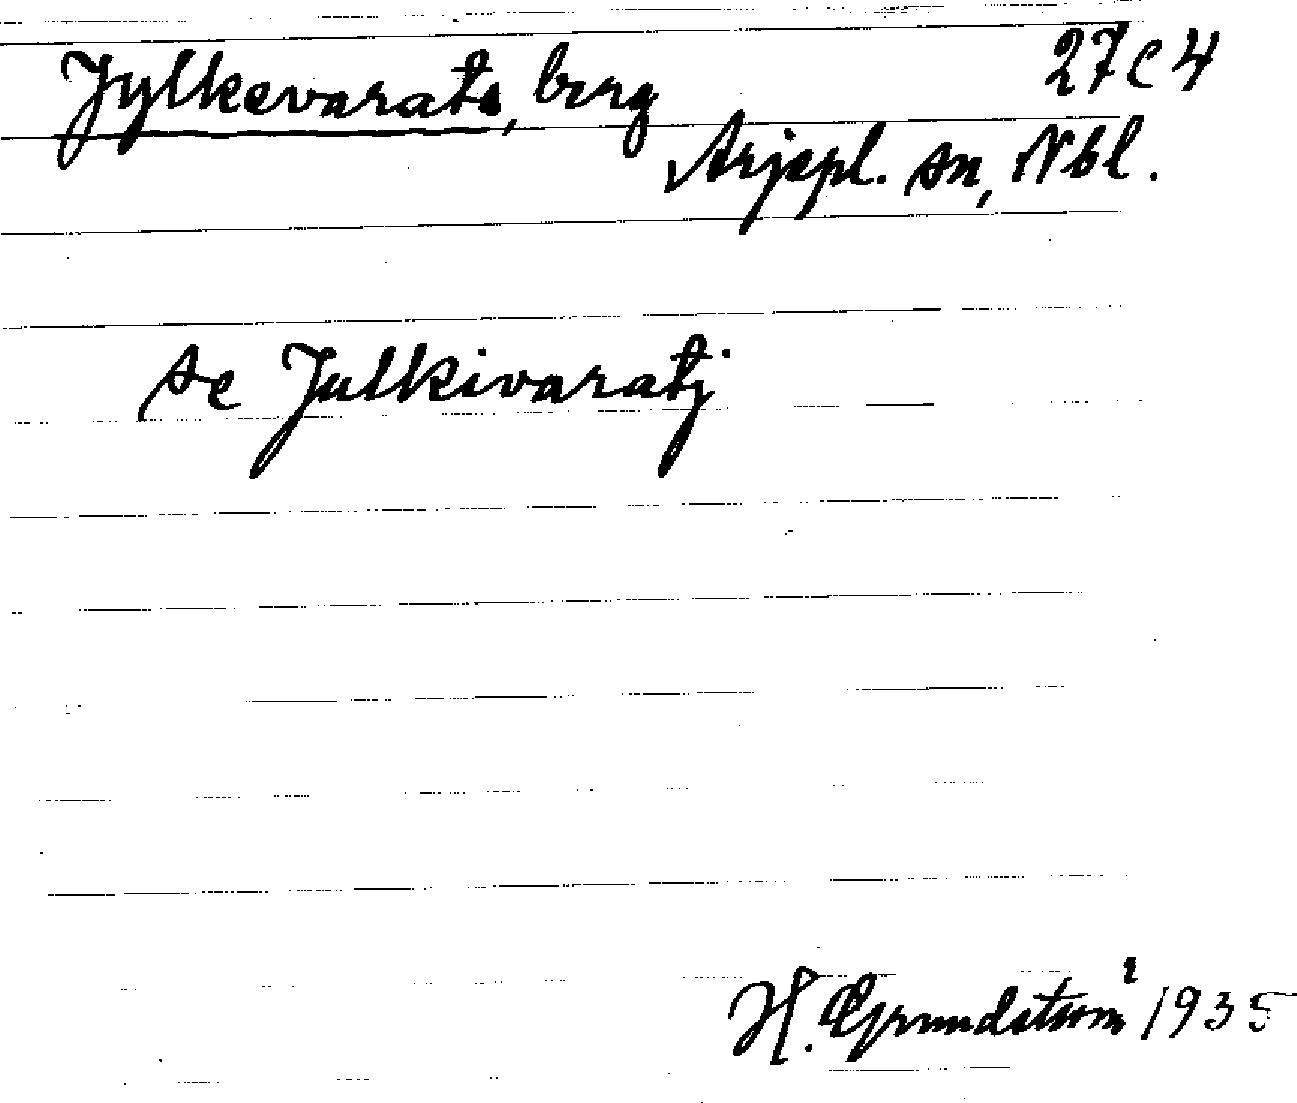 Jylkevarats, berg 27 C 4
Arjepl. sn, Nbl.
se Julkivaratj
H. Grundström 1935